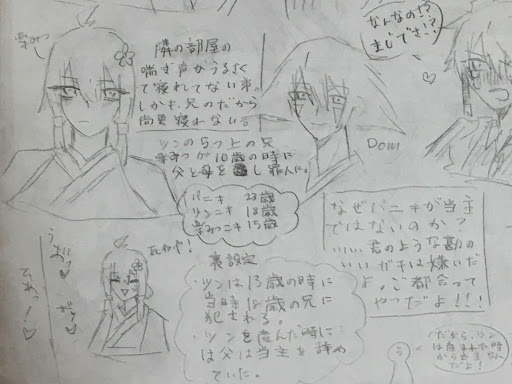 なんなの!?
まじでさ!?
隣の部屋の
喘ぎ声がうるさく
て寝れてない弟。
しかも、兄のだから
尚更寝れない。
ツンの5つ上の兄
が10歳の時に
父と母を し罪人に。
Dom
パニキ 23歳
ツンニキ 18歳
みつニキ 15歳
なぜパニキが当主
ではないのか?
いい、君のような勘の
いいガキは嫌いだ
よ。ご都合って
やつだよ!!!
裏設定
・ツンは13歳の時に
当時18歳の兄に
犯される。
・ツンを産んだ時に
は父は当主を辞め
ていた。
だから、ツン
は産まれた時
から当主
だよ!